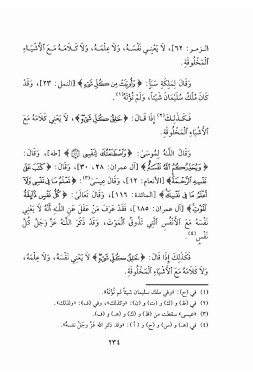 الزمر: ٦٢]، لا يعني نفسه، ولا علمه، ولا كلامه مع الأشياء
المخلوقة.
وقال لملكة سبأ: ﴿وأوتيت من كل شيء﴾ [النمل: ٢٣]، وقد
كان ملك سليمان شيئاً، ولم تؤته(١).
فكذلك(٢) إذا قال: ﴿خلق كل شيء﴾، لا يعني كلامه مع
الأشياء المخلوقة.
وقال الله لموسى: ﴿واصطنعتك لنفسي﴾ [طه]، وقال:
﴿ويحذركم الله نفسه﴾ [آل عمران: ٢٨، ٣٠]، وقال: ﴿كتب على
نفسه الرحمة﴾ [الأنعام: ١٢]، وقال عيسى(٣): ﴿تعلم ما في نفسي ولا
أعلم ما في نفسك﴾ [المائدة: ١١٦]، وقال تعالى: ﴿كل نفس ذائقة
الموت﴾ [آل عمران: ١٨٥]، فقد عرف من عقل عن الله أنه لا يعني
نفسه مع الأنفس التي تذوق الموت، وقد ذكر الله عز وجل كل
نفس(٤).
فكذلك إذا قال: ﴿خلق كل شيء﴾ لا يعني نفسه، ولا علمه،
ولا كلامه مع الأشياء المخلوقة.
(١) في (ح): «وفي ملك سليمان شيئاً لم تؤته».
(٢) في (ظ) و(ك) و(ت) و(ن): «وكذلك»، وفي (ف): «ولذلك».
(٣) «عيسى» سقطت من (ظ) و(ك) و(هـ) و(ف).
(٤) في (هـ) و(س) و(ح) و(أ): «وقد ذكر الله عز وجل نفسه».
٢٣٤